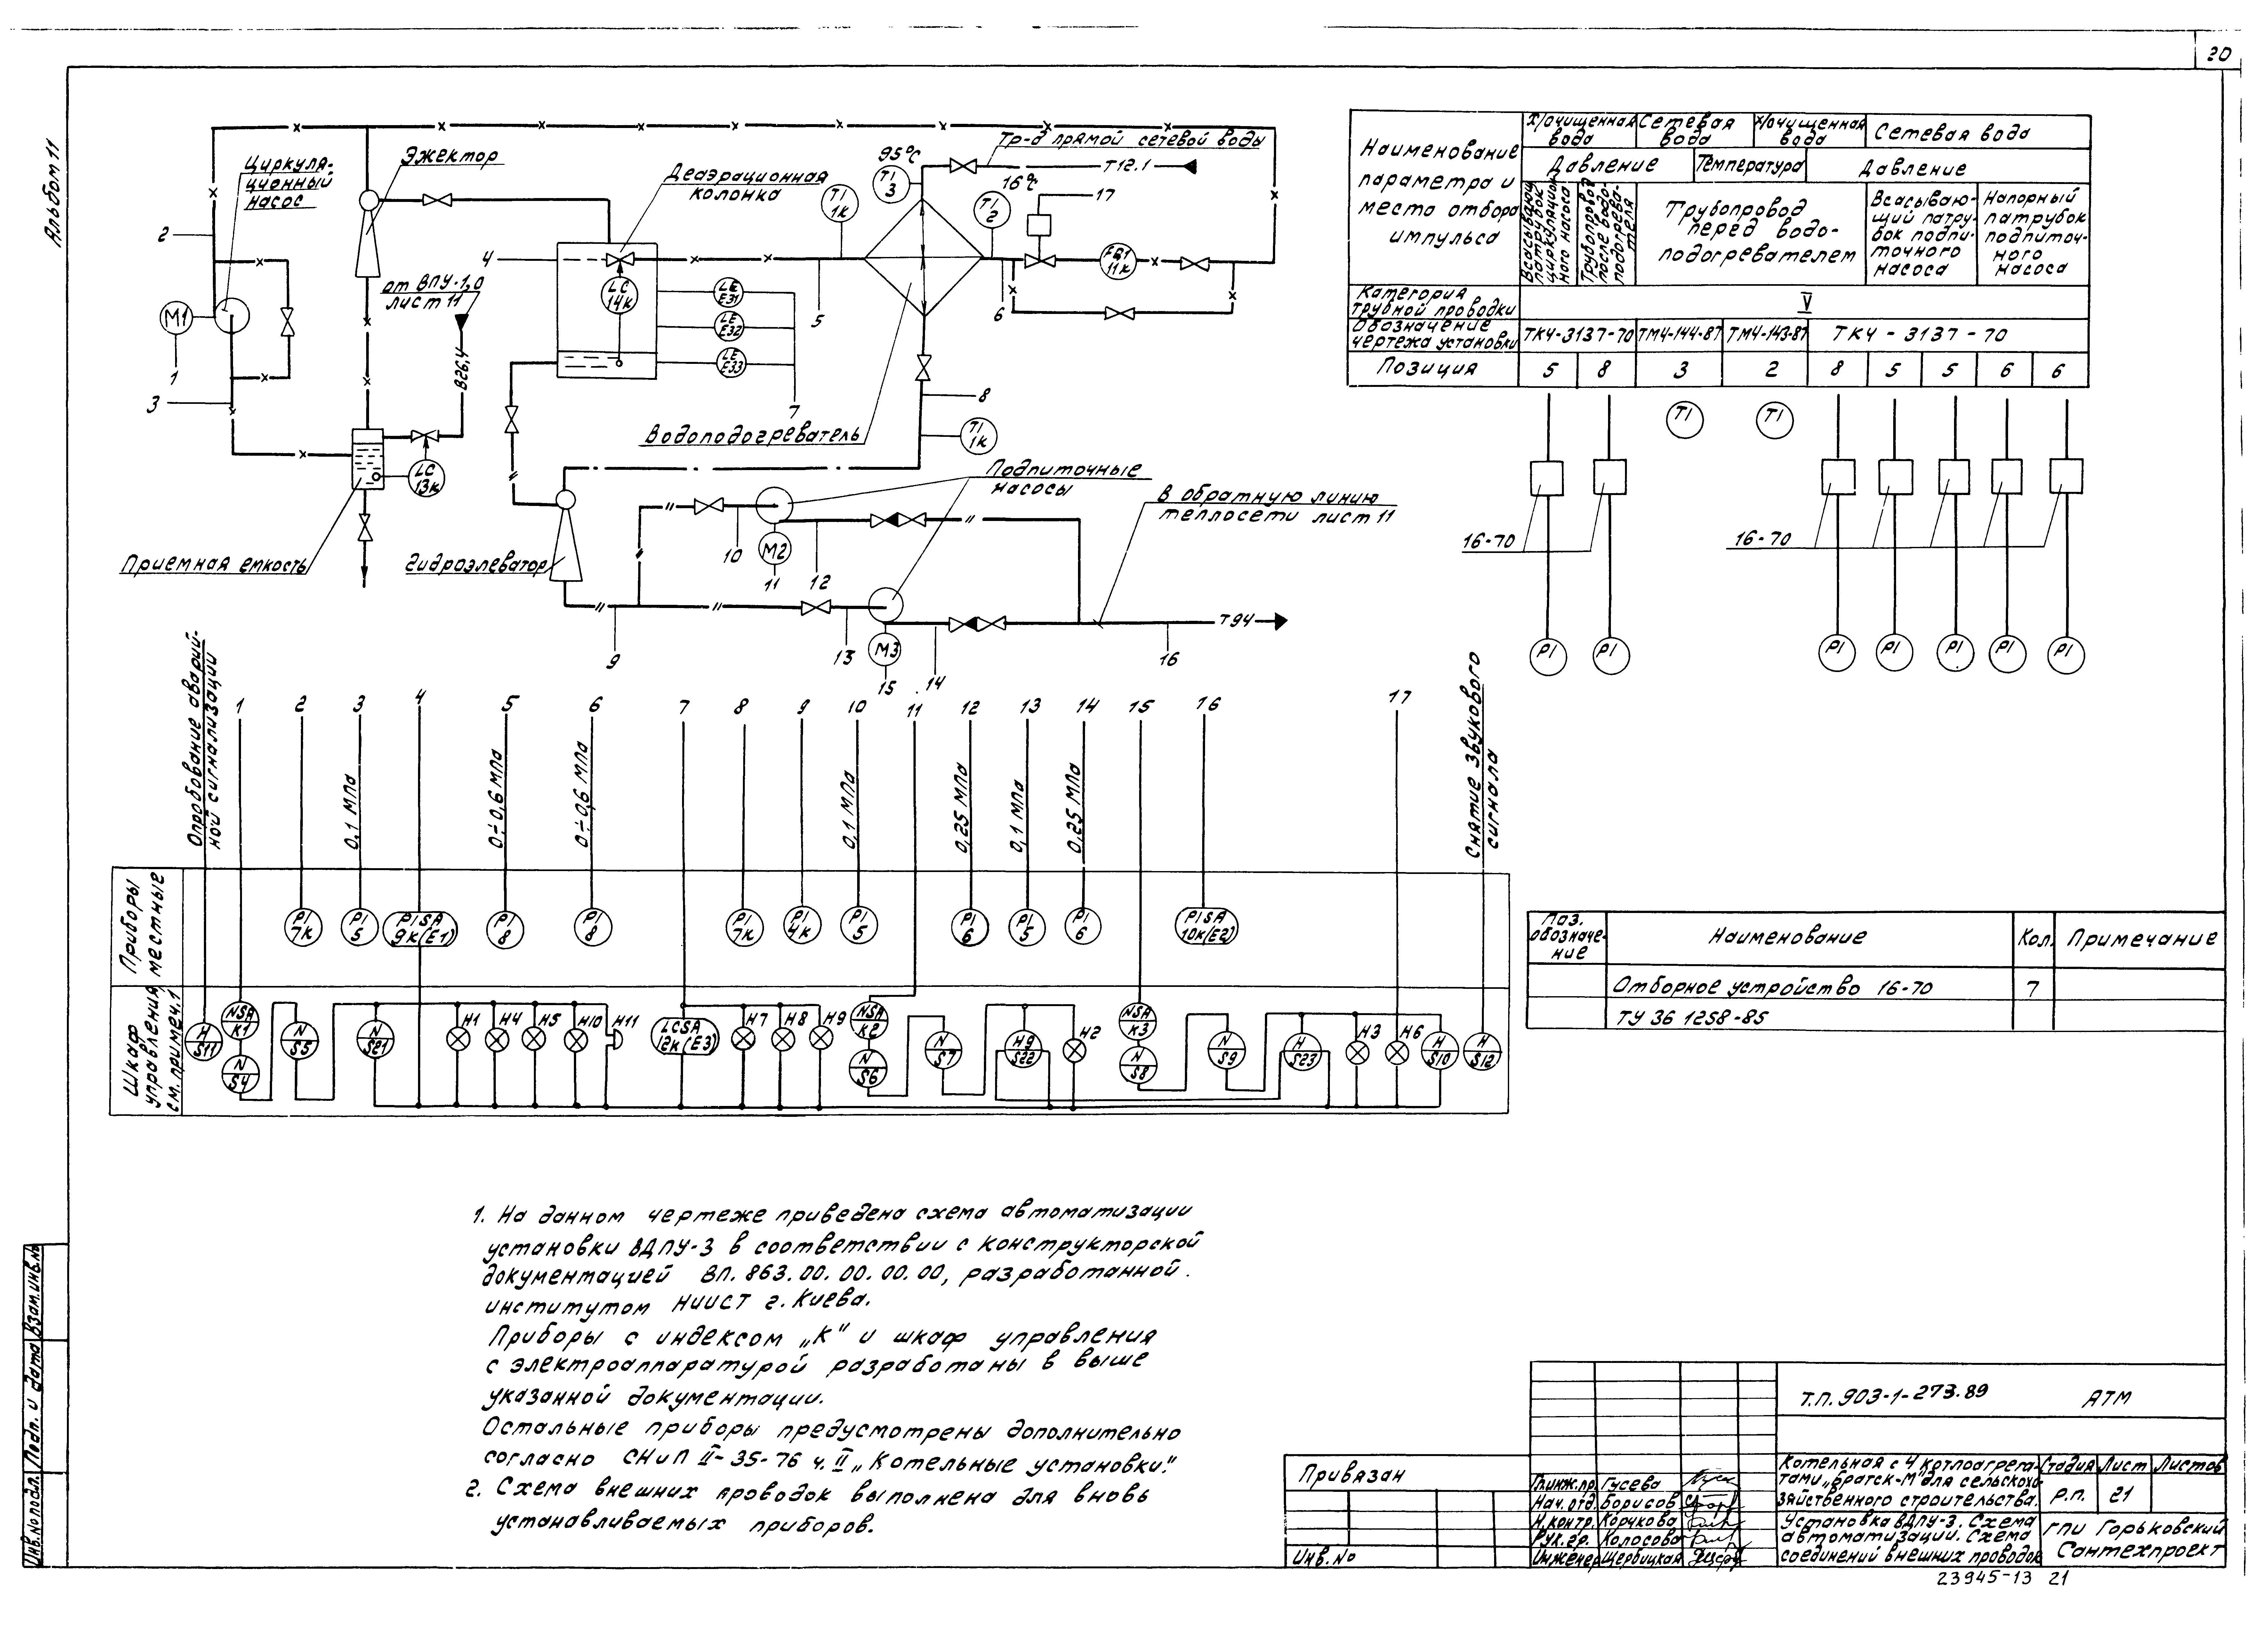 20
Альбом 11
Циркуля-
ционный
насос
Эжектор
Деаэрационная
колонка
Тр-д прямой сетевой воды
Т12.1
95°С
16°С
TI
3
TI
1к
TI
2
17
2
4
от ВПУ-1,0
лист 11
LC
14к
LE
E31
LE
E32
LE
E33
FQ1
11к
5
6
М1
1
3
В26,4
7
8
LC
13к
Водоподогреватель
TI
1к
Подпиточные
насосы
в обратную линию
теплосети лист 11
Приемная емкость
гидроэлеватор
10
М2
11
12
9
13
М3
14
15
16
Т94
Наименование
параметра и
место отбора
импульса
Х/очищенная
вода
Сетевая
вода
Х/очищенная
вода
Сетевая вода
Давление
Температура
Давление
Всасывающ.
патрубок
циркуляцион
ного насоса
Трубопровод
после водо-
подогрева-
теля
Трубопровод
перед водо-
подогревателем
Всасываю-
щий патру-
бок подпи-
точного
насоса
Напорный
патрубок
подпиточ-
ного
насоса
Категория
трубной проводки
V
Обозначение
чертежа установки
ТК4-3137-70
ТМ4-144-87
ТМ4-143-87
ТК4-3137-70
Позиция
5
8
3
2
8
5
5
6
6
TI
TI
16-70
16-70
PI
PI
PI
PI
PI
PI
PI
Опробование аварий-
ной сигнализации
1
2
3
4
5
6
7
8
9
10
11
12
13
14
15
16
17
Снятие звукового
сигнала
0,1 МПа
0÷0,6 МПа
0÷0,6 МПа
0,1 МПа
0,25 МПа
0,1 МПа
0,25 МПа
Приборы
местные
PI
7к
PI
5
PISA
9к(Е1)
PI
8
PI
8
PI
7к
PI
4к
PI
5
PI
6
PI
5
PI
6
PISA
10к(Е2)
Шкаф
управления
см. примеч.1
H
S11
NSA
К1
N
S4
N
S5
N
S21
Н1
Н4
Н5
Н10
Н11
LCSA
12к(Е3)
Н7
Н8
Н9
NSA
К2
N
S6
N
S7
H9
S22
Н2
NSA
К3
N
S8
N
S9
H
S23
Н3
Н6
H
S10
H
S12
Поз.
обозначе-
ние
Наименование
Кол.
Примечание
Отборное устройство 16-70
7
ТУ 36 1258-85
1. На данном чертеже приведена схема автоматизации
установки ВДПУ-3 в соответствии с конструкторской
документацией ВП. 863.00.00.00.00, разработанной
институтом НИИСТ г. Киева.
Приборы с индексом „К" и шкаф управления
с электроаппаратурой разработаны в выше
указанной документации.
Остальные приборы предусмотрены дополнительно
согласно СНиП II-35-76 ч. II „Котельные установки".
2. Схема внешних проводок выполнена для вновь
устанавливаемых приборов.
Инв.№ подл.
Подп. и дата
Взам.инв.№
Привязан
Инв.№
Гл.инж.пр.
Гусева
Нач.отд.
Борисов
Н.контр.
Корчкова
Рук.гр.
Колосова
Инженер
Щербицкая
Т.П. 903-1-273.89
АТМ
Котельная с 4 котлоагрега-
тами „Братск-М" для сельскохо-
зяйственного строительства.
Стадия
Лист
Листов
Р.п.
21
Установка ВДПУ-3. Схема
автоматизации. Схема
соединений внешних проводок
ГПИ Горьковский
Сантехпроект
23945-13 21